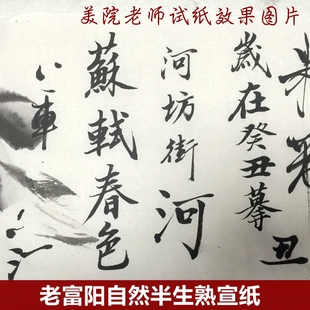 美院老师试纸效果图片
丑
歲在癸丑摹
河坊街河
蘇軾春色
老富阳自然半生熟宣纸